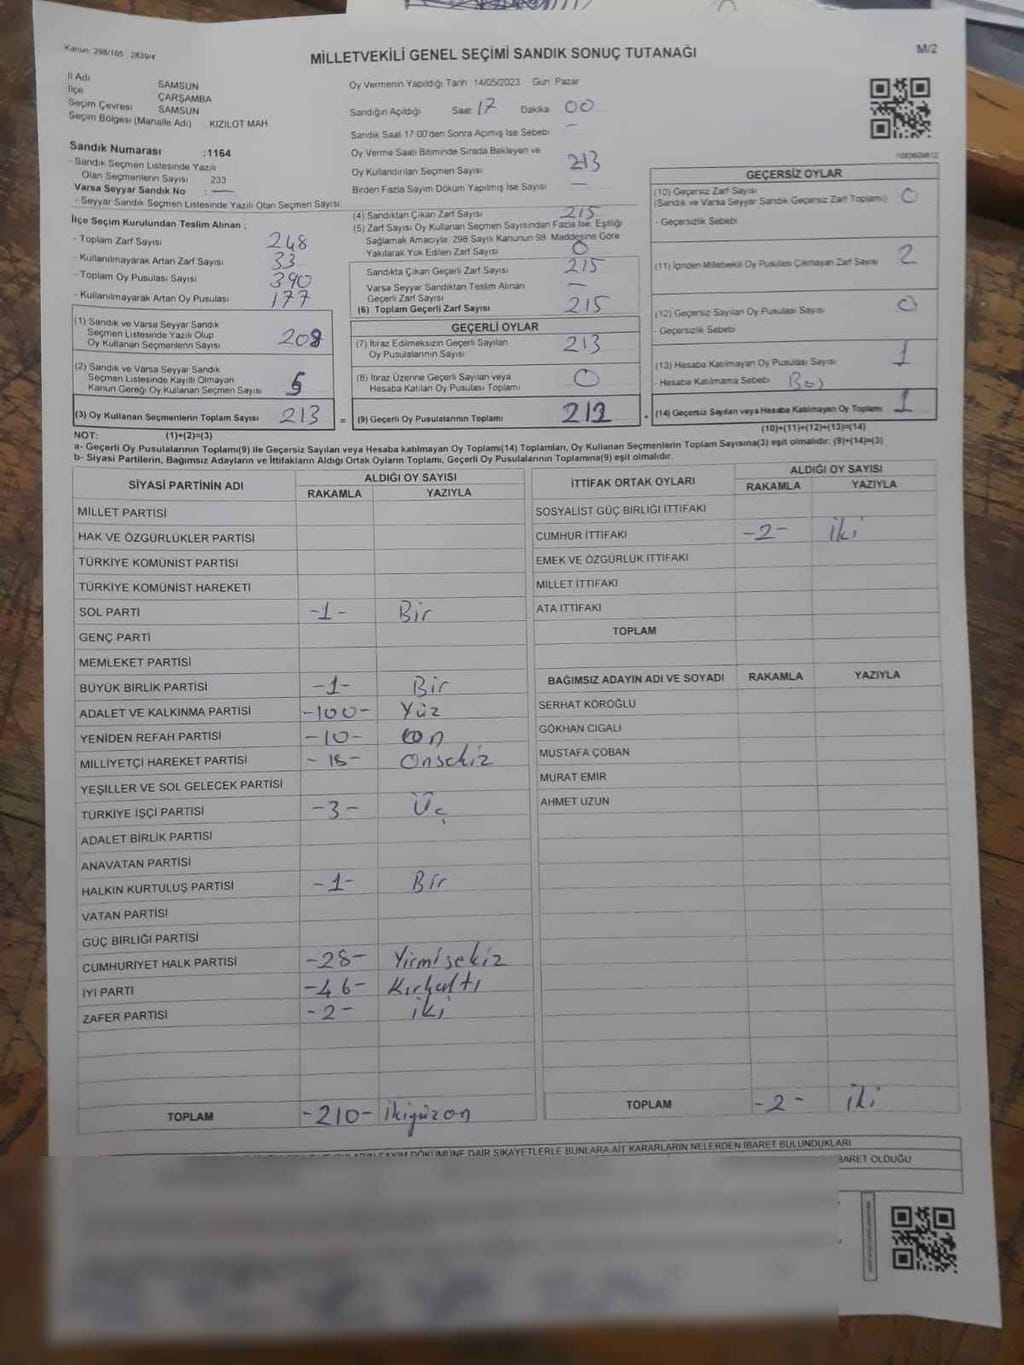 Kanun: 298/105 2839/4
MİLLETVEKİLİ GENEL SEÇİMİ SANDIK SONUÇ TUTANAĞI
M/2
İl Adı SAMSUN
İlçe ÇARŞAMBA
Seçim Çevresi SAMSUN
Seçim Bölgesi (Mahalle Adı) KIZILOT MAH.
Sandık Numarası :1164
- Sandık Seçmen Listesinde Yazılı
Olan Seçmenlerin Sayısı 233
Varsa Seyyar Sandık No : —
- Seyyar Sandık Seçmen Listesinde Yazılı Olan Seçmen Sayısı
İlçe Seçim Kurulundan Teslim Alınan ;
- Toplam Zarf Sayısı 248
- Kullanılmayarak Artan Zarf Sayısı 33
- Toplam Oy Pusulası Sayısı 390
- Kullanılmayarak Artan Oy Pusulası 177
(1) Sandık ve Varsa Seyyar Sandık
Seçmen Listesinde Yazılı Olup
Oy Kullanan Seçmenlerin Sayısı 208
(2) Sandık ve Varsa Seyyar Sandık
Seçmen Listesinde Kayıtlı Olmayan
Kanun Gereği Oy Kullanan Seçmen Sayısı 5
(3) Oy Kullanan Seçmenlerin Toplam Sayısı 213 =
Oy Vermenin Yapıldığı Tarih 14/05/2023 Gün Pazar
Sandığın Açıldığı Saat 17 Dakika 00
Sandık Saat 17:00'den Sonra Açılmış İse Sebebi —
Oy Verme Saati Bitiminde Sırada Bekleyen ve
Oy Kullandırılan Seçmen Sayısı 213
Birden Fazla Sayım Döküm Yapılmış İse Sayısı —
(4) Sandıktan Çıkan Zarf Sayısı 215
(5) Zarf Sayısı Oy Kullanan Seçmen Sayısından Fazla İse, Eşitliği
Sağlamak Amacıyla, 298 Sayılı Kanunun 98. Maddesine Göre
Yakılarak Yok Edilen Zarf Sayısı 0
Sandıkta Çıkan Geçerli Zarf Sayısı 215
Varsa Seyyar Sandıktan Teslim Alınan
Geçerli Zarf Sayısı —
(6) Toplam Geçerli Zarf Sayısı 215
GEÇERLİ OYLAR
(7) İtiraz Edilmeksizin Geçerli Sayılan
Oy Pusulalarının Sayısı 213
(8) İtiraz Üzerine Geçerli Sayılan veya
Hesaba Katılan Oy Pusulası Toplamı 0
(9) Geçerli Oy Pusulalarının Toplamı 212 +
GEÇERSİZ OYLAR
(10) Geçersiz Zarf Sayısı
(Sandık ve Varsa Seyyar Sandık Geçersiz Zarf Toplamı) 0
- Geçersizlik Sebebi
(11) İçinden Milletvekili Oy Pusulası Çıkmayan Zarf Sayısı 2
(12) Geçersiz Sayılan Oy Pusulası Sayısı 0
- Geçersizlik Sebebi
(13) Hesaba Katılmayan Oy Pusulası Sayısı 1
- Hesaba Katılmama Sebebi Boş
(14) Geçersiz Sayılan veya Hesaba Katılmayan Oy Toplamı 1
NOT: (1)+(2)=(3)
(10)+(11)+(12)+(13)=(14)
a- Geçerli Oy Pusulalarının Toplamı(9) ile Geçersiz Sayılan veya Hesaba katılmayan Oy Toplamı(14) Toplamları, Oy Kullanan Seçmenlerin Toplam Sayısına(3) eşit olmalıdır. (9)+(14)=(3)
b- Siyasi Partilerin, Bağımsız Adayların ve İttifakların Aldığı Ortak Oyların Toplamı, Geçerli Oy Pusulalarının Toplamına(9) eşit olmalıdır.
SİYASİ PARTİNİN ADI ALDIĞI OY SAYISI
RAKAMLA YAZIYLA
MİLLET PARTİSİ
HAK VE ÖZGÜRLÜKLER PARTİSİ
TÜRKİYE KOMÜNİST PARTİSİ
TÜRKİYE KOMÜNİST HAREKETİ
SOL PARTİ -1- Bir
GENÇ PARTİ
MEMLEKET PARTİSİ
BÜYÜK BİRLİK PARTİSİ -1- Bir
ADALET VE KALKINMA PARTİSİ -100- Yüz
YENİDEN REFAH PARTİSİ -10- on
MİLLİYETÇİ HAREKET PARTİSİ -18- Onsekiz
YEŞİLLER VE SOL GELECEK PARTİSİ
TÜRKİYE İŞÇİ PARTİSİ -3- Üç
ADALET BİRLİK PARTİSİ
ANAVATAN PARTİSİ
HALKIN KURTULUŞ PARTİSİ -1- Bir
VATAN PARTİSİ
GÜÇ BİRLİĞİ PARTİSİ
CUMHURİYET HALK PARTİSİ -28- Yirmisekiz
İYİ PARTİ -46- Kırkaltı
ZAFER PARTİSİ -2- iki
TOPLAM -210- İkiyüzon
İTTİFAK ORTAK OYLARI ALDIĞI OY SAYISI
RAKAMLA YAZIYLA
SOSYALİST GÜÇ BİRLİĞİ İTTİFAKI
CUMHUR İTTİFAKI -2- iki
EMEK VE ÖZGÜRLÜK İTTİFAKI
MİLLET İTTİFAKI
ATA İTTİFAKI
TOPLAM
BAĞIMSIZ ADAYIN ADI VE SOYADI RAKAMLA YAZIYLA
SERHAT KÖROĞLU
GÖKHAN CIGALI
MUSTAFA ÇOBAN
MURAT EMİR
AHMET UZUN
TOPLAM -2- iki
SAYIM DÖKÜMÜNE DAİR ŞİKAYETLERLE BUNLARA AİT KARARLARIN NELERDEN İBARET BULUNDUKLARI
BARET OLDUĞU